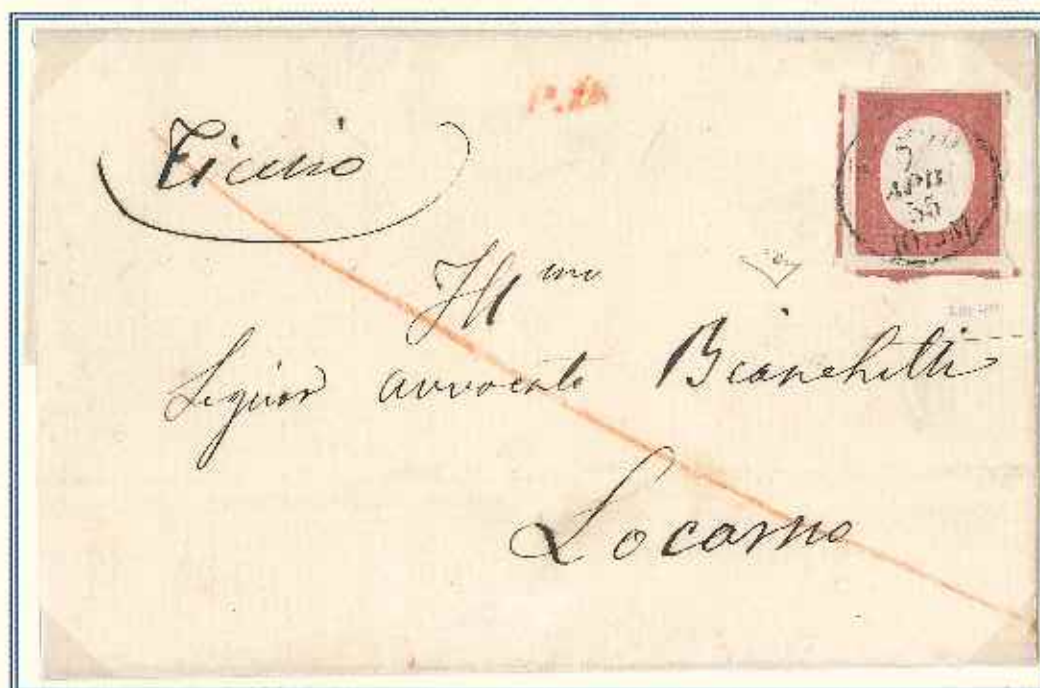 P.D.
Ticino
7
APR
55
Ill.mo
Signor avvocato Bianchetti
Locarno